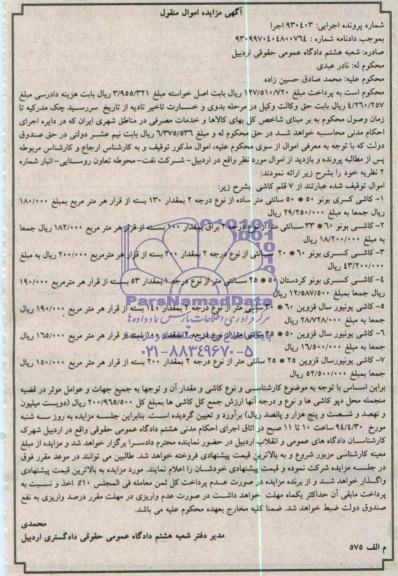 آگهی مزایده اموال منقول
شماره پرونده اجرایی: ۹۳۰۴۰۳ اجرا
بموجب دادنامه شماره : ۹۳۰۹۹۷۰۴۰۴۸۰۰۷۶۴
صادره: شعبه هشتم دادگاه عمومی حقوقی اردبیل
محکوم له: نادر عبدی
محکوم علیه: محمد صادق حسین زاده
محکوم است به پرداخت مبلغ ۱۲۷/۵۱۰/۷۲۰ ریال بابت اصل خواسته مبلغ ۳/۹۵۵/۳۲۱ ریال بابت هزینه دادرسی مبلغ
۴/۲۶۰/۲۵۷ ریال بابت حق وکالت وکیل در مرحله بدوی و خسارت تاخیر تادیه از تاریخ سررسید چک مدرکیه تا
زمان وصول محکوم به بر مبنای شاخص کل بهای کالاها و خدمات مصرفی در مناطق شهری ایران که در دایره اجرای
احکام مدنی محاسبه خواهد شد در حق محکوم له و مبلغ ۶/۳۷۵/۵۳۶ ریال بابت نیم عشر دولتی در حق صندوق
دولت که با توجه به معرفی اموال از سوی محکوم علیه، اموال مذکور توقیف و به کارشناس ارجاع و کارشناس مربوطه
پس از مطالبه پرونده و بازدید از اموال مورد نظر واقع در اردبیل- شرکت نفت- محوطه تعاون روستایی- انبار شماره
۲ نظریه خود را بشرح زیر ارائه نمودند:
اموال توقیف شده عبارتند از ۷ قلم کاشی بشرح زیر:
۱- کاشی کسری بونو ۵۰ * ۵۰ سانتی متر ساده از نوع درجه ۲ بمقدار ۱۳۰ بسته از قرار هر متر مربع ۱۸۰/۰۰۰
ریال جمعا به مبلغ ۲۹/۲۵۰/۰۰۰ ریال
۲- کاشی بونو ۶۰ * ۳۳ سانتی متر از نوع درجه ۲ براق بمقدار ۱۰۰ بسته از قرار هر متر مربع ۱۸۲/۰۰۰ ریال جمعا
به مبلغ ۱۸/۲۰۰/۰۰۰ ریال
۳- کاشی کسری بونو ۶۰ * ۲۰ سانتی از نوع درجه ۲ بمقدار ۲۰۰ بسته از قرار هر مترمربع ۲۰۰/۰۰۰ ریال به مبلغ
۴۳/۲۰۰/۰۰۰ ریال
۴- کاشی کسری بونو کردستان ۵۰ * ۲۵ سانتی متر از نوع درجه ۱ بمقدار ۵۳ بسته از قرار هر مترمربع ۱۹۰/۰۰۰
ریال جمعا بمبلغ ۱۲/۵۸۷/۵۰۰ ریال
۵- کاشی یونیور سال قزوین ۶۰ * سانتی متر از نوع درجه ۲ بمقدار ۱۴۱ بسته از قرار هر متر مربع ۱۹۰/۰۰۰ ریال
جمعا به مبلغ ۲۸/۷۲۸/۰۰۰ ریال
۶- کاشی یونیور سال قزوین ۵۰ * ۲۵ سانتی متر از نوع درجه ۲ بمقدار بسته از قرار هر متر مربع ۱۶۵/۰۰۰ ریال
جمعا به مبلغ ۱۶/۵۰۰/۰۰۰ ریال
۷- کاشی یونیورسال قزوین ۲۵ * ۲۵ سانتی متر از نوع درجه ۲ بمقدار ۲۰۰ بسته از قرار هر متر مربع ۱۵۰/۰۰۰ ریال
جمعا بمبلغ ۵۲/۵۰۰/۰۰۰ ریال
براین اساس با توجه به موضوع کارشناسی و نوع کاشی و مقدار آن و توجها به جمیع جهات و عوامل موثر در قضیه
منجمله محل دپو کاشی ها و نوع و درجه آنها ارزش جمع کل کاشی ها بمبلغ کل ۲۰۰/۹۶۵/۵۰۰ ریال (دویست میلیون
و نهصد و شصت و پنج هزار و پانصد ریال) برآورد و تعیین گردیده است. بنابراین جلسه مزایده به روز سه شنبه
مورخ ۹۴/۴/۳۰ ساعت ۱۰ تا ۱۱ صبح در اتاق اجرای احکام مدنی هشتم دادگاه عمومی حقوقی واقع در اردبیل شهرک
کارشناسان دادگاه های عمومی و انقلاب اردبیل در حضور نماینده محترم دادسرا برگزار خواهد شد و مزایده از مبلغ
معینه کارشناسی مزبور شروع و به بالاترین قیمت پیشنهادی فروخته خواهد شد. طالبین می توانند در موعد مقرر فوق
در جلسه مزایده شرکت نموده و قیمت پیشنهادی خودشان را اعلام نمایند. مورد مزایده به بالاترین قیمت پیشنهادی
واگذار خواهد شد و از برنده مزایده در صورت عدم پرداخت کل ثمن معامله فی المجلس ۱۰٪ اخذ و نسبت به
پرداخت مابقی آن حداکثر یکماه مهلت خواهد داشت در صورت عدم واریزی در مهلت مقرر درصد واریزی به نفع
صندوق دولت ضبط خواهد شد. ضمنا کلیه مخارج بعهده محکوم علیه می باشد.
محمدی
مدیر دفتر شعبه هشتم دادگاه عمومی حقوقی دادگستری اردبیل
م الف ۵۷۵
ParsNamadData
۰۲۱-۸۸۳۴۹۶۷۰-۵